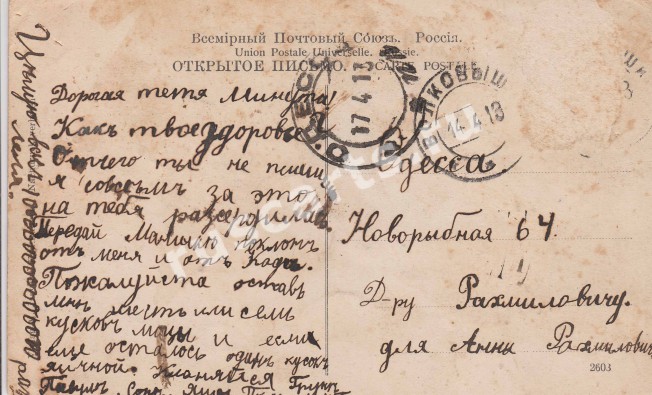 Всемірный Почтовый Союзъ. Россія.
Union Postale Universelle. Russie.
ОТКРЫТОЕ ПИСЬМО. CARTE POSTALE.
Дорогая тетя Минута!
Какъ твое здоровье
Отчего ты не пишешь
я совсѣмъ за это
на тебя разсердилась.
Передай Мамичкѣ поклонъ
отъ меня и отъ
Пожалуйста оставь
мнѣ шесть или семь
кусковъ мацы и если
еще осталось одинъ кусокъ
яичной. Кланяйся
Цѣлую васъ
ОДЕССА
17 4 13
ВОЛКОВЫШ
14.4.13
Одесса
Новорыбная 64.
Д-ру Рахмиловичу.
для Анны Рахмилович
2603